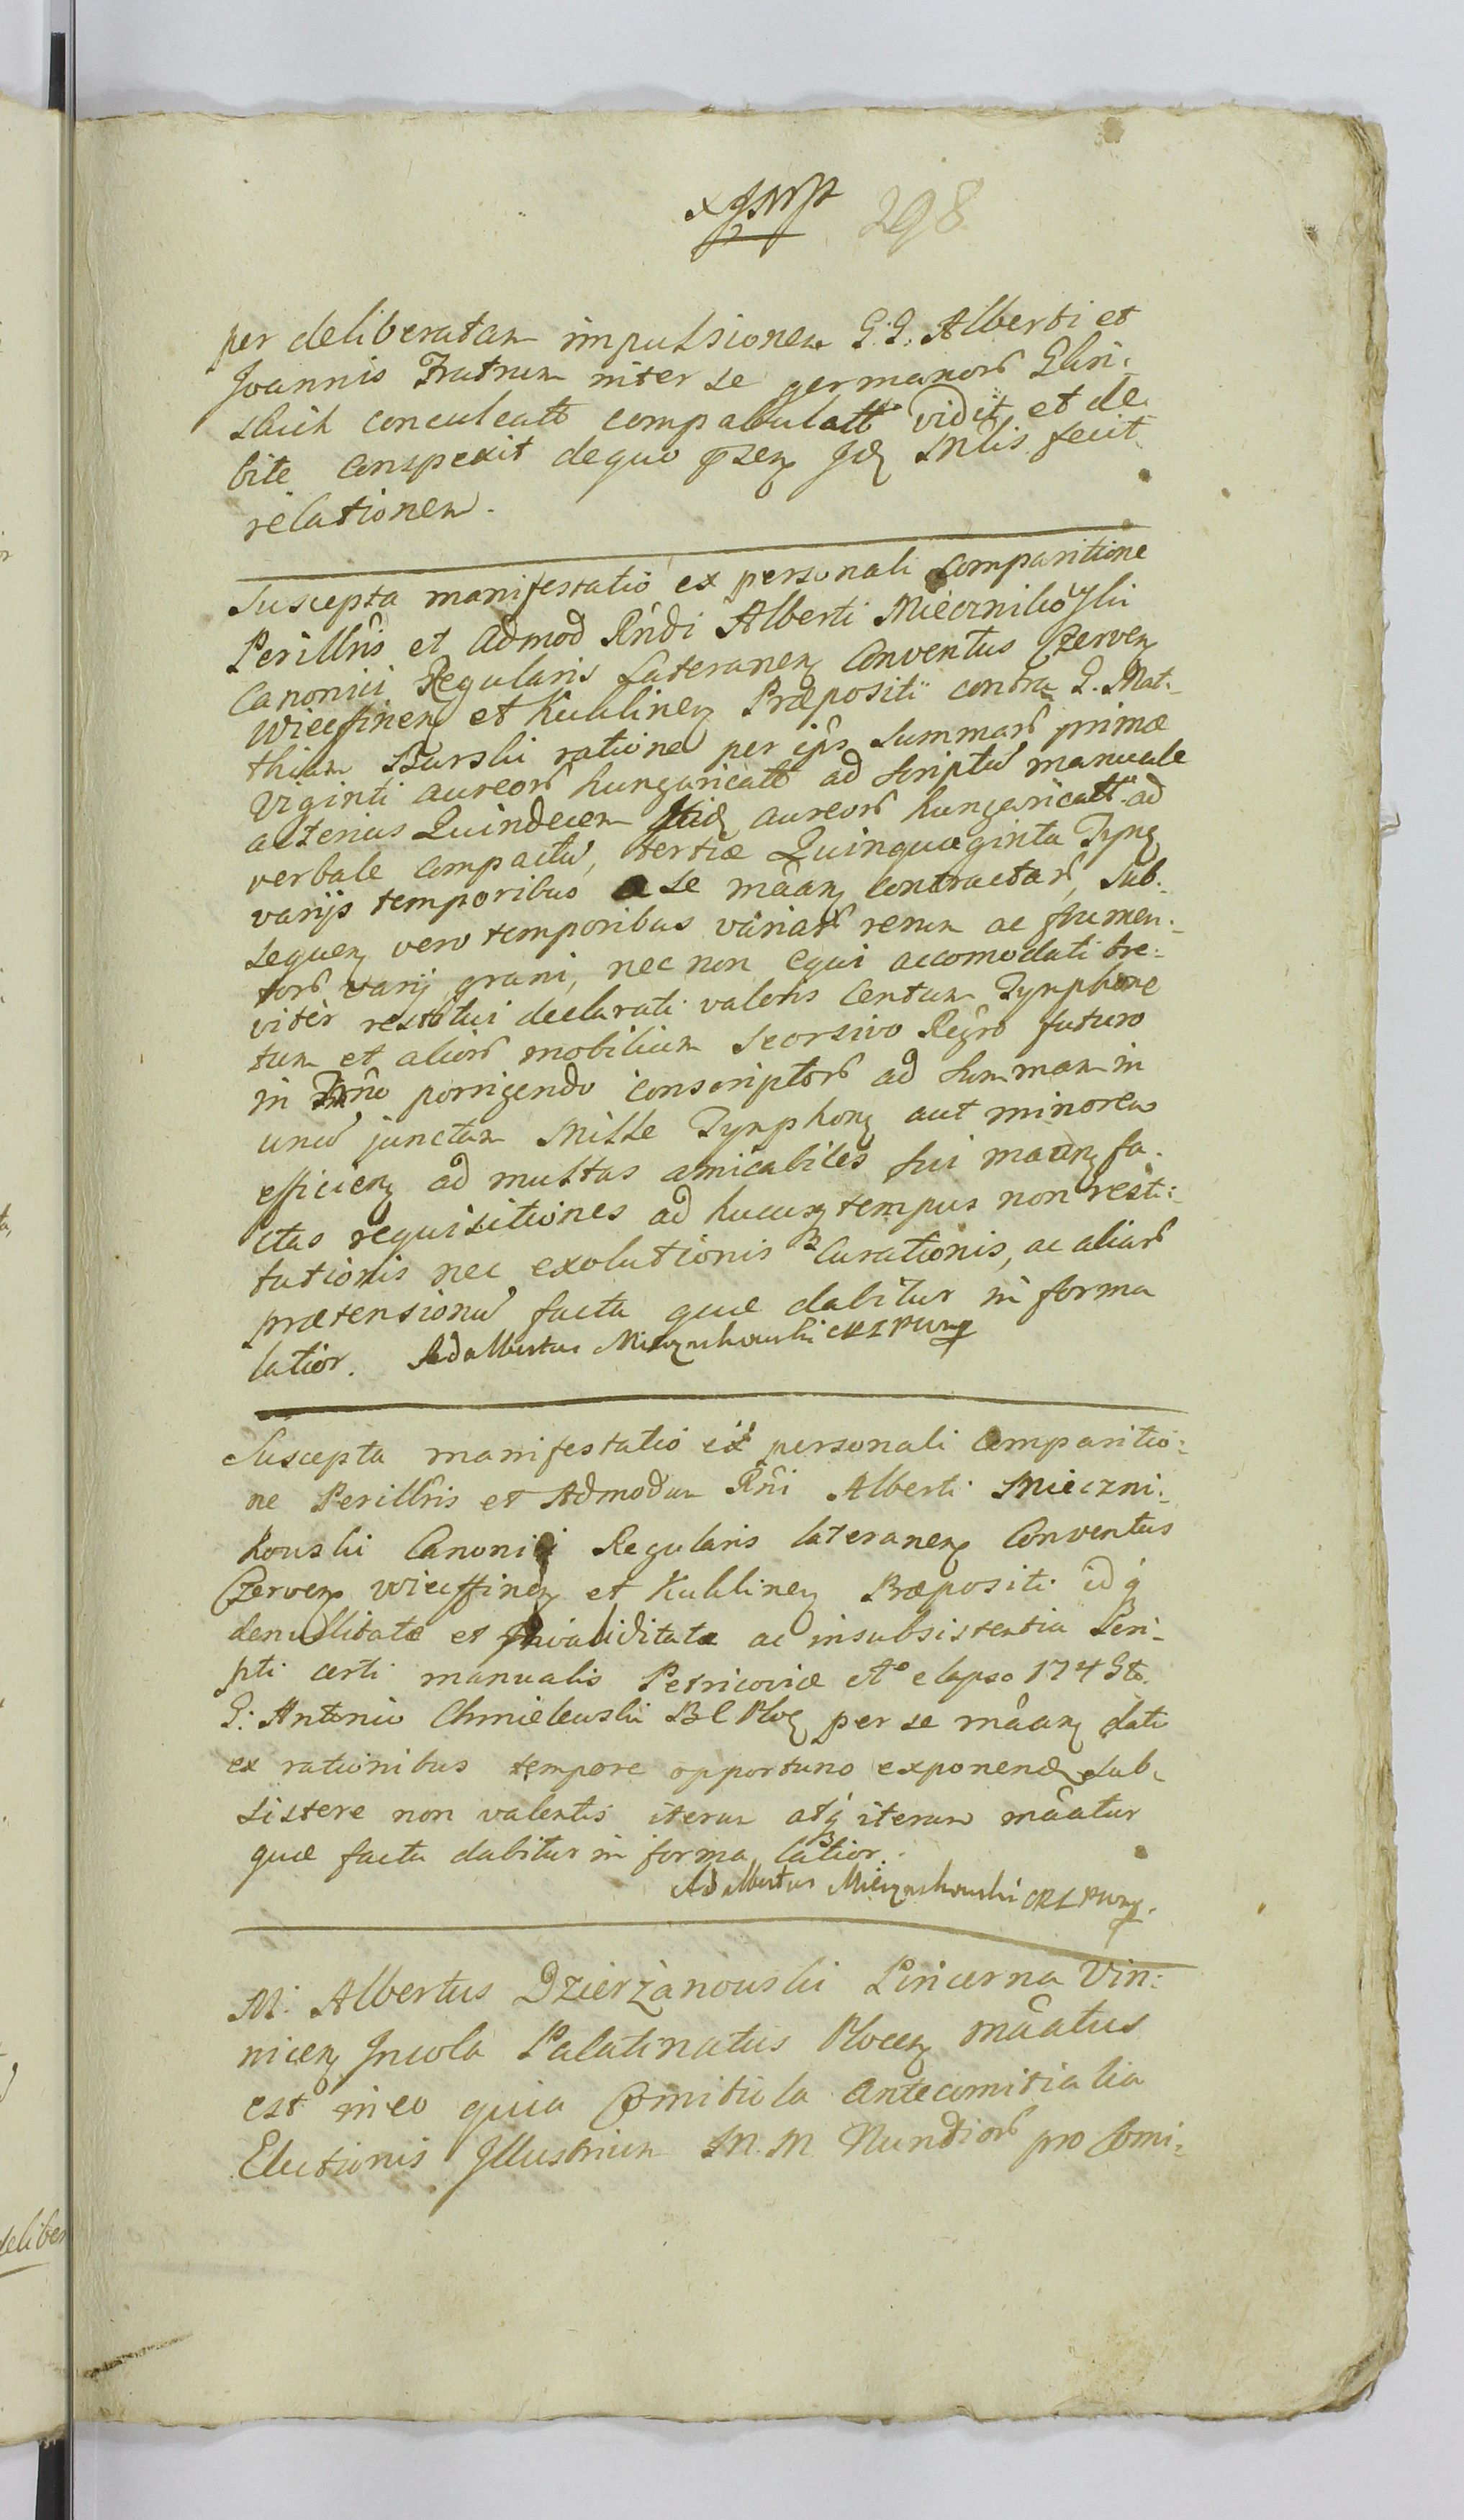 298
per deliberatam impulsionem G. G. Alberti et
Joannis Fratrum inter se germanor Glin-
skich conculcatt compabulatt vidit et de
bite conspexit de quo psenꝫ Jdꝫ Mlis fecit
relationem.
Suscepta manifestatio ex personali Comparitione
Perillris et Admod Rndi Alberti Miecznikoski
Canonici Regularis Lateranenꝫ Conventus Czerwenꝫ
et Kuklinenꝫ Præpositi contra G. Mat-
thiam Burski ratione per ips Summar primæ
Viginti aureor hungaricatt ad Scriptu manuale
alterius Quindecem itidꝫ aureor hungaricatt ad
verbale compactu, tertiæ Quinquaginta Tynꝫ
varijs temporibus a se maanꝫ contractar, Sub-
sequenꝫ vero temporibus variar rerum ac frumen-
tor varij grani, nec non equi accomodati bre-
viter restitui declarati valoris Centum Tynphone
tum et alior mobilium Seorsivo Regro futuro
in Trno porrigendo conscriptor ad Summam in
unu junctam Mille Tynphonꝫ aut minorem
efficienꝫ ad multas amicabiles sui maanꝫ fa-
ctas requisitiones ad hucusqꝫ tempus non resti-
tutionis nec exolutionis Curationis, ac aliar
prætensionu facta quæ dabitur in forma
latior. Adalbertus Miecznikowski CRL
Suscepta manifestatio ex personali Comparitio-
ne Perillris et Admodum Rni Alberti Mieczni-
kowski Canonici Regularis lateranenꝫ Conventus
Czerwenꝫ et Kuklinenꝫ Præpositi idqꝫ
de nullitate et Invaliditate ac insubsistentia Scri-
pti certi manualis Petricoviæ Ao elapso 174
G. Antonio Chmielewski B C Plocꝫ per se maanꝫ dati
ex rationibus tempore opportuno exponendꝫ sub-
sistere non valentis iterum atqꝫ iterum maatur
quæ facta dabitur in forma latior.
Adalbertus Miecznikowski CRL
M. Albertus Dzierżanowski Pincerna Vin-
nicenꝫ Incola Palatinatus Plocenꝫ maatus
est in eo quia Comitiola Antecomitialia
Electionis Jllustrium M. M Nuntior pro Comi-